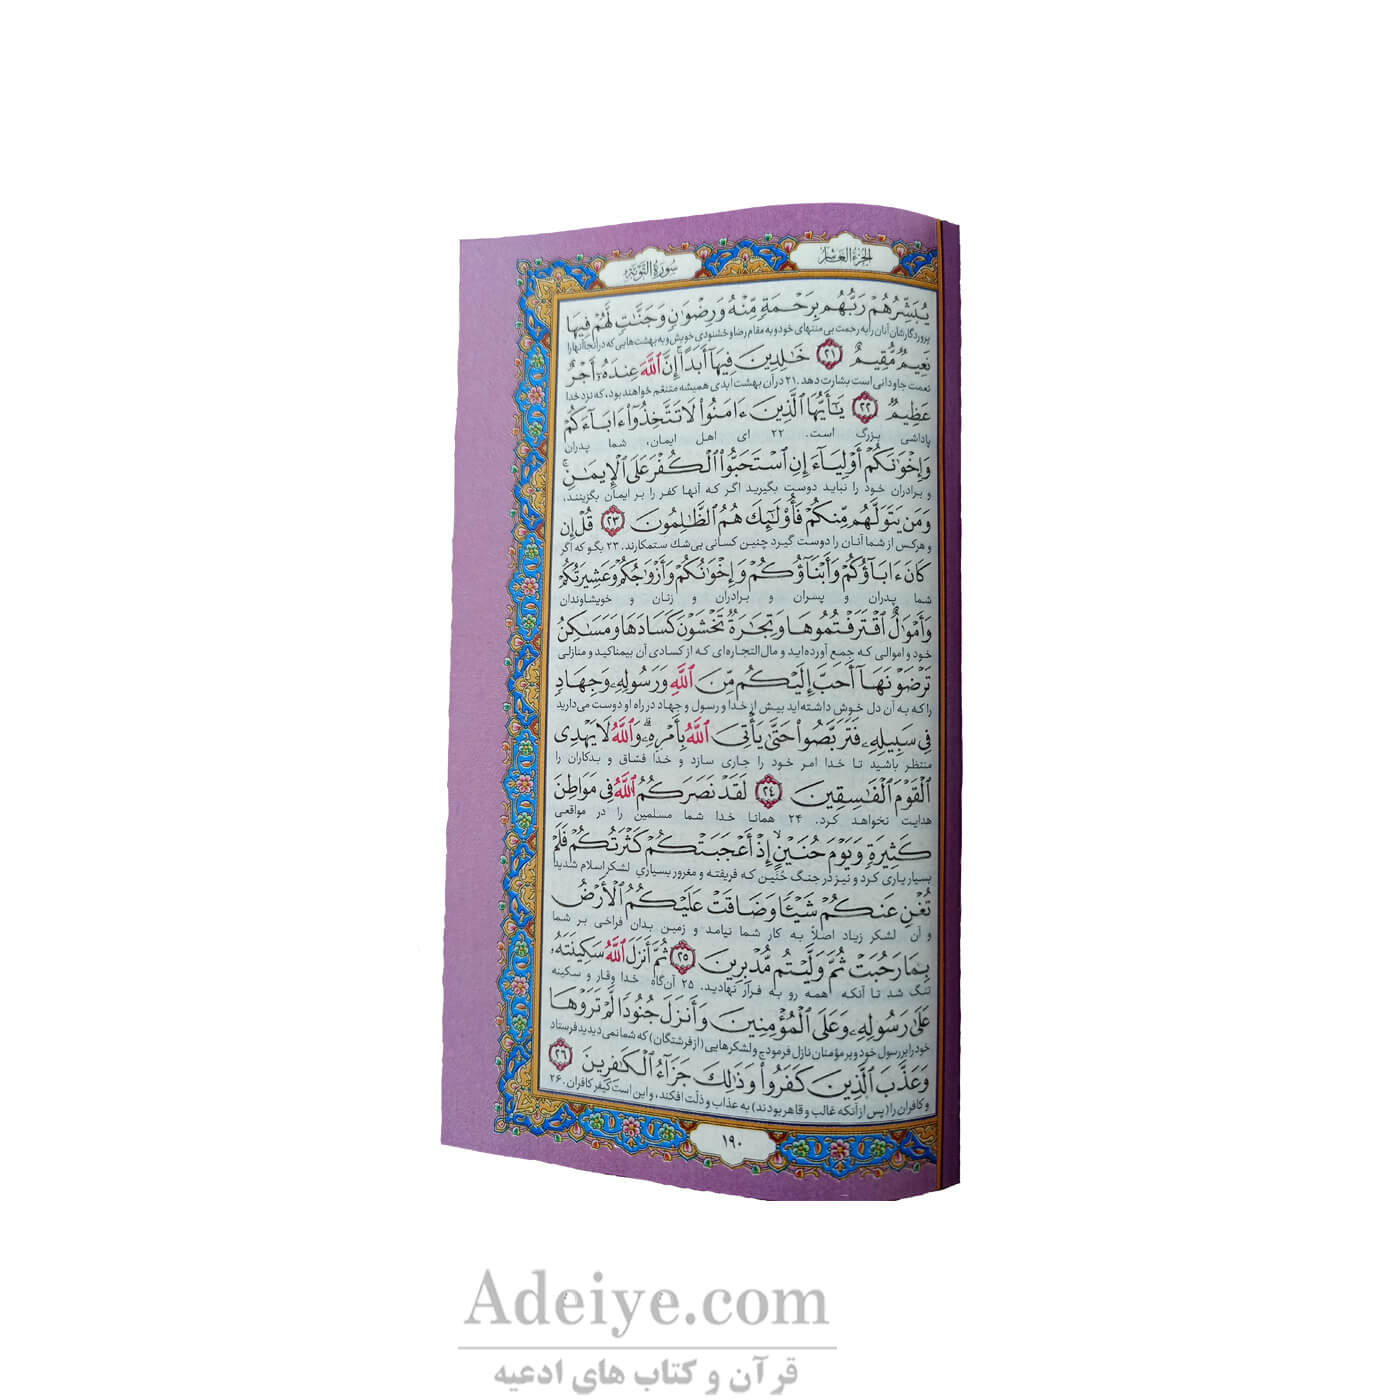 الجزء العاشر
سورة التوبة
يُبَشِّرُهُمْ رَبُّهُم بِرَحْمَةٍ مِّنْهُ وَرِضْوَٰنٍ وَجَنَّٰتٍ لَّهُمْ فِيهَا
پروردگارشان آنان را به رحمت بی‌منتهای خود و به مقام رضا و خشنودی خویش و به بهشت‌هایی که در آنجا آنها را
نَعِيمٌ مُّقِيمٌ ۲۱ خَٰلِدِينَ فِيهَآ أَبَدًا إِنَّ ٱللَّهَ عِندَهُۥٓ أَجْرٌ
نعمت جاودانی است بشارت دهد. ۲۱ در آن بهشت ابدی همیشه متنعّم خواهند بود، که نزد خدا
عَظِيمٌ ۲۲ يَٰٓأَيُّهَا ٱلَّذِينَ ءَامَنُوا۟ لَا تَتَّخِذُوٓا۟ ءَابَآءَكُمْ
پاداشی بزرگ است. ۲۲ ای اهل ایمان، شما پدران
وَإِخْوَٰنَكُمْ أَوْلِيَآءَ إِنِ ٱسْتَحَبُّوا۟ ٱلْكُفْرَ عَلَى ٱلْإِيمَٰنِ ۚ
و برادران خود را نباید دوست بگیرید اگر که آنها کفر را بر ایمان بگزینند،
وَمَن يَتَوَلَّهُم مِّنكُمْ فَأُو۟لَٰٓئِكَ هُمُ ٱلظَّٰلِمُونَ ۲۳ قُلْ إِن
و هرکس از شما آنان را دوست گیرد چنین کسانی بی‌شك ستمکارند. ۲۳ بگو که اگر
كَانَ ءَابَآؤُكُمْ وَأَبْنَآؤُكُمْ وَإِخْوَٰنُكُمْ وَأَزْوَٰجُكُمْ وَعَشِيرَتُكُمْ
شما پدران و پسران و برادران و زنان و خویشاوندان
وَأَمْوَٰلٌ ٱقْتَرَفْتُمُوهَا وَتِجَٰرَةٌ تَخْشَوْنَ كَسَادَهَا وَمَسَٰكِنُ
خود و اموالی که جمع آورده‌اید و مال‌التجاره‌ای که از کسادی آن بیمناکید و منازلی
تَرْضَوْنَهَآ أَحَبَّ إِلَيْكُم مِّنَ ٱللَّهِ وَرَسُولِهِۦ وَجِهَادٍ
را که به آن دل خوش داشته‌اید بیش از خدا و رسول و جهاد در راه او دوست می‌دارید
فِى سَبِيلِهِۦ فَتَرَبَّصُوا۟ حَتَّىٰ يَأْتِىَ ٱللَّهُ بِأَمْرِهِۦ ۗ وَٱللَّهُ لَا يَهْدِى
منتظر باشید تا خدا امر خود را جاری سازد و خدا فسّاق و بدکاران را
ٱلْقَوْمَ ٱلْفَٰسِقِينَ ۲۴ لَقَدْ نَصَرَكُمُ ٱللَّهُ فِى مَوَاطِنَ
هدایت نخواهد کرد. ۲۴ همانا خدا شما مسلمین را در مواقعی
كَثِيرَةٍ وَيَوْمَ حُنَيْنٍ ۙ إِذْ أَعْجَبَتْكُمْ كَثْرَتُكُمْ فَلَمْ
بسیار یاری کرد و نیز در جنگ حُنَین که فریفته و مغرور بسیاری لشکر اسلام شدید
تُغْنِ عَنكُمْ شَيْـًٔا وَضَاقَتْ عَلَيْكُمُ ٱلْأَرْضُ
و آن لشکر زیاد اصلاً به کار شما نیامد و زمین بدان فراخی بر شما
بِمَا رَحُبَتْ ثُمَّ وَلَّيْتُم مُّدْبِرِينَ ۲۵ ثُمَّ أَنزَلَ ٱللَّهُ سَكِينَتَهُۥ
تنگ شد تا آنکه همه رو به فرار نهادید. ۲۵ آن‌گاه خدا وقار و سکینه
عَلَىٰ رَسُولِهِۦ وَعَلَى ٱلْمُؤْمِنِينَ وَأَنزَلَ جُنُودًا لَّمْ تَرَوْهَا
خود را بر رسول خود و بر مؤمنان نازل فرمود و لشکرهایی (از فرشتگان) که شما نمی‌دیدید فرستاد
وَعَذَّبَ ٱلَّذِينَ كَفَرُوا۟ وَذَٰلِكَ جَزَآءُ ٱلْكَٰفِرِينَ ۲۶
و کافران را (پس از آنکه غالب و قاهر بودند) به عذاب و ذلّت افکند، و این است کیفر کافران. ۲۶
۱۹۰
Adeiye.com
قرآن و کتاب های ادعیه